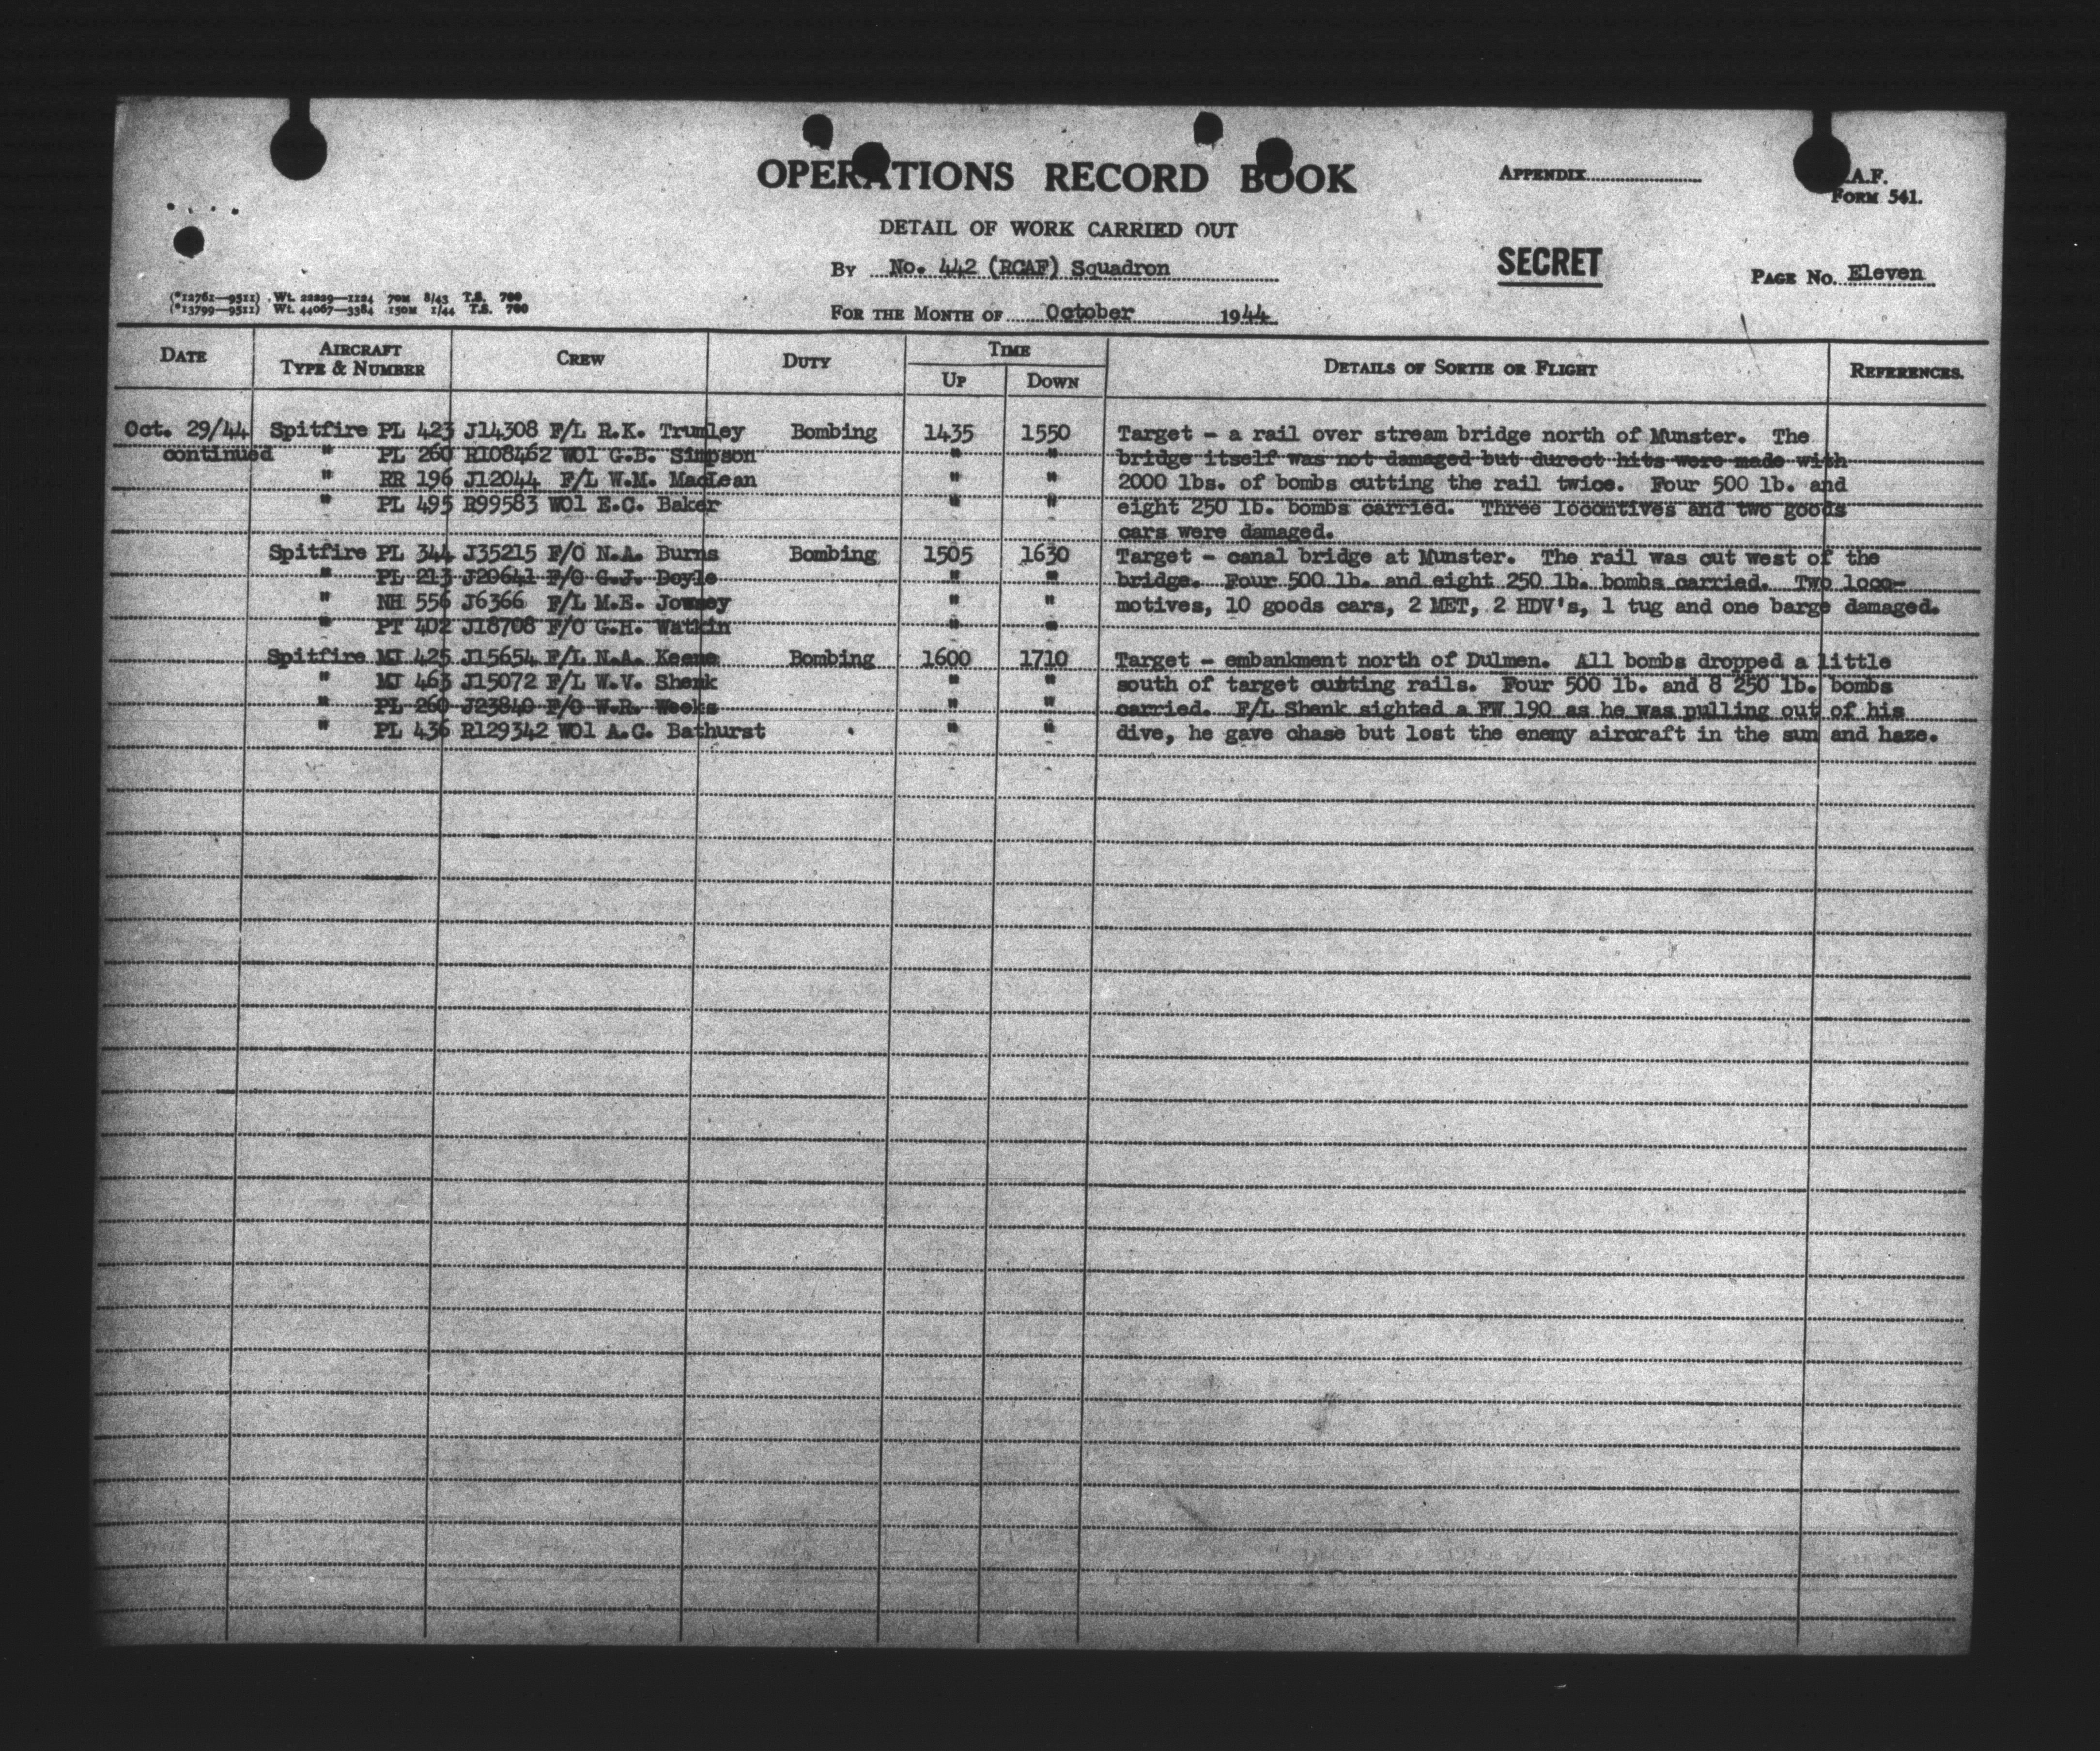 OPERATIONS RECORD BOOK
APPENDIX
.A.F.
FORM 541.
DETAIL OF WORK CARRIED OUT
By No. 442 (RCAF) Squadron
SECRET
PAGE No. Eleven
(*12761—9511) Wt. 22229—1124 70M 8/43 T.S. 700
(*13799—9511) Wt. 44067—3384 150M 1/44 T.S. 700
FOR THE MONTH OF October 1944
DATE AIRCRAFT TYPE & NUMBER CREW DUTY TIME UP DOWN DETAILS OF SORTIE OR FLIGHT REFERENCES.
Oct. 29/44 Spitfire PL 423 J14308 F/L R.K. Trumley Bombing 1435 1550 Target - a rail over stream bridge north of Munster. The
continued " PL 260 R108462 WO1 G.B. Simpson " " bridge itself was not damaged but durect hits were made with
" RR 196 J12044 F/L W.M. MacLean " " 2000 lbs. of bombs cutting the rail twice. Four 500 lb. and
" PL 495 R99583 WO1 E.C. Baker " " eight 250 lb. bombs carried. Three locomtives and two goods
cars were damaged.
Spitfire PL 344 J35215 F/O N.A. Burns Bombing 1505 1630 Target - canal bridge at Munster. The rail was cut west of the
" PL 213 J20641 F/O G.J. Doyle " " bridge. Four 500 lb. and eight 250 lb. bombs carried. Two loco-
" NH 556 J6366 F/L M.E. Jowsey " " motives, 10 goods cars, 2 MET, 2 HDV's, 1 tug and one barge damaged.
" PT 402 J18708 F/O G.H. Watkin " "
Spitfire MJ 425 J15654 F/L N.A. Keene Bombing 1600 1710 Target - embankment north of Dulmen. All bombs dropped a little
" MJ 463 J15072 F/L W.V. Shenk " " south of target cutting rails. Four 500 lb. and 8 250 lb. bombs
" PL 260 J23840 F/O W.R. Weeks " " carried. F/L Shenk sighted a FW 190 as he was pulling out of his
" PL 436 R129342 WO1 A.C. Bathurst " " dive, he gave chase but lost the enemy aircraft in the sun and haze.